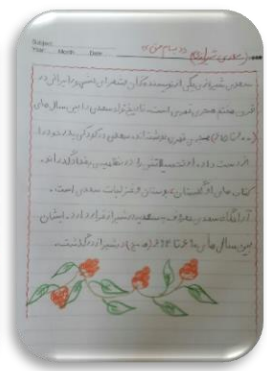 Subject:
Year:   Month:   Date:
«به نام خدا»
سعدی شیرازی یکی از نویسندگان و شعرای مشهور ایرانی در
قرن هفتم هجری قمری است. تاریخ تولد سعدی را بین سال های
هجری قمری نوشته اند. سعدی در کودکی پدر خود را
از دست داد. او تحصیلاتش را در نظامیه بغداد گذراند.
کتاب های او گلستان، بوستان و غزلیات سعدی است.
آرامگاه سعدی معروف به سعدیه در شیراز قرار دارد. ایشان
بین سال های تا در شیراز درگذشت.